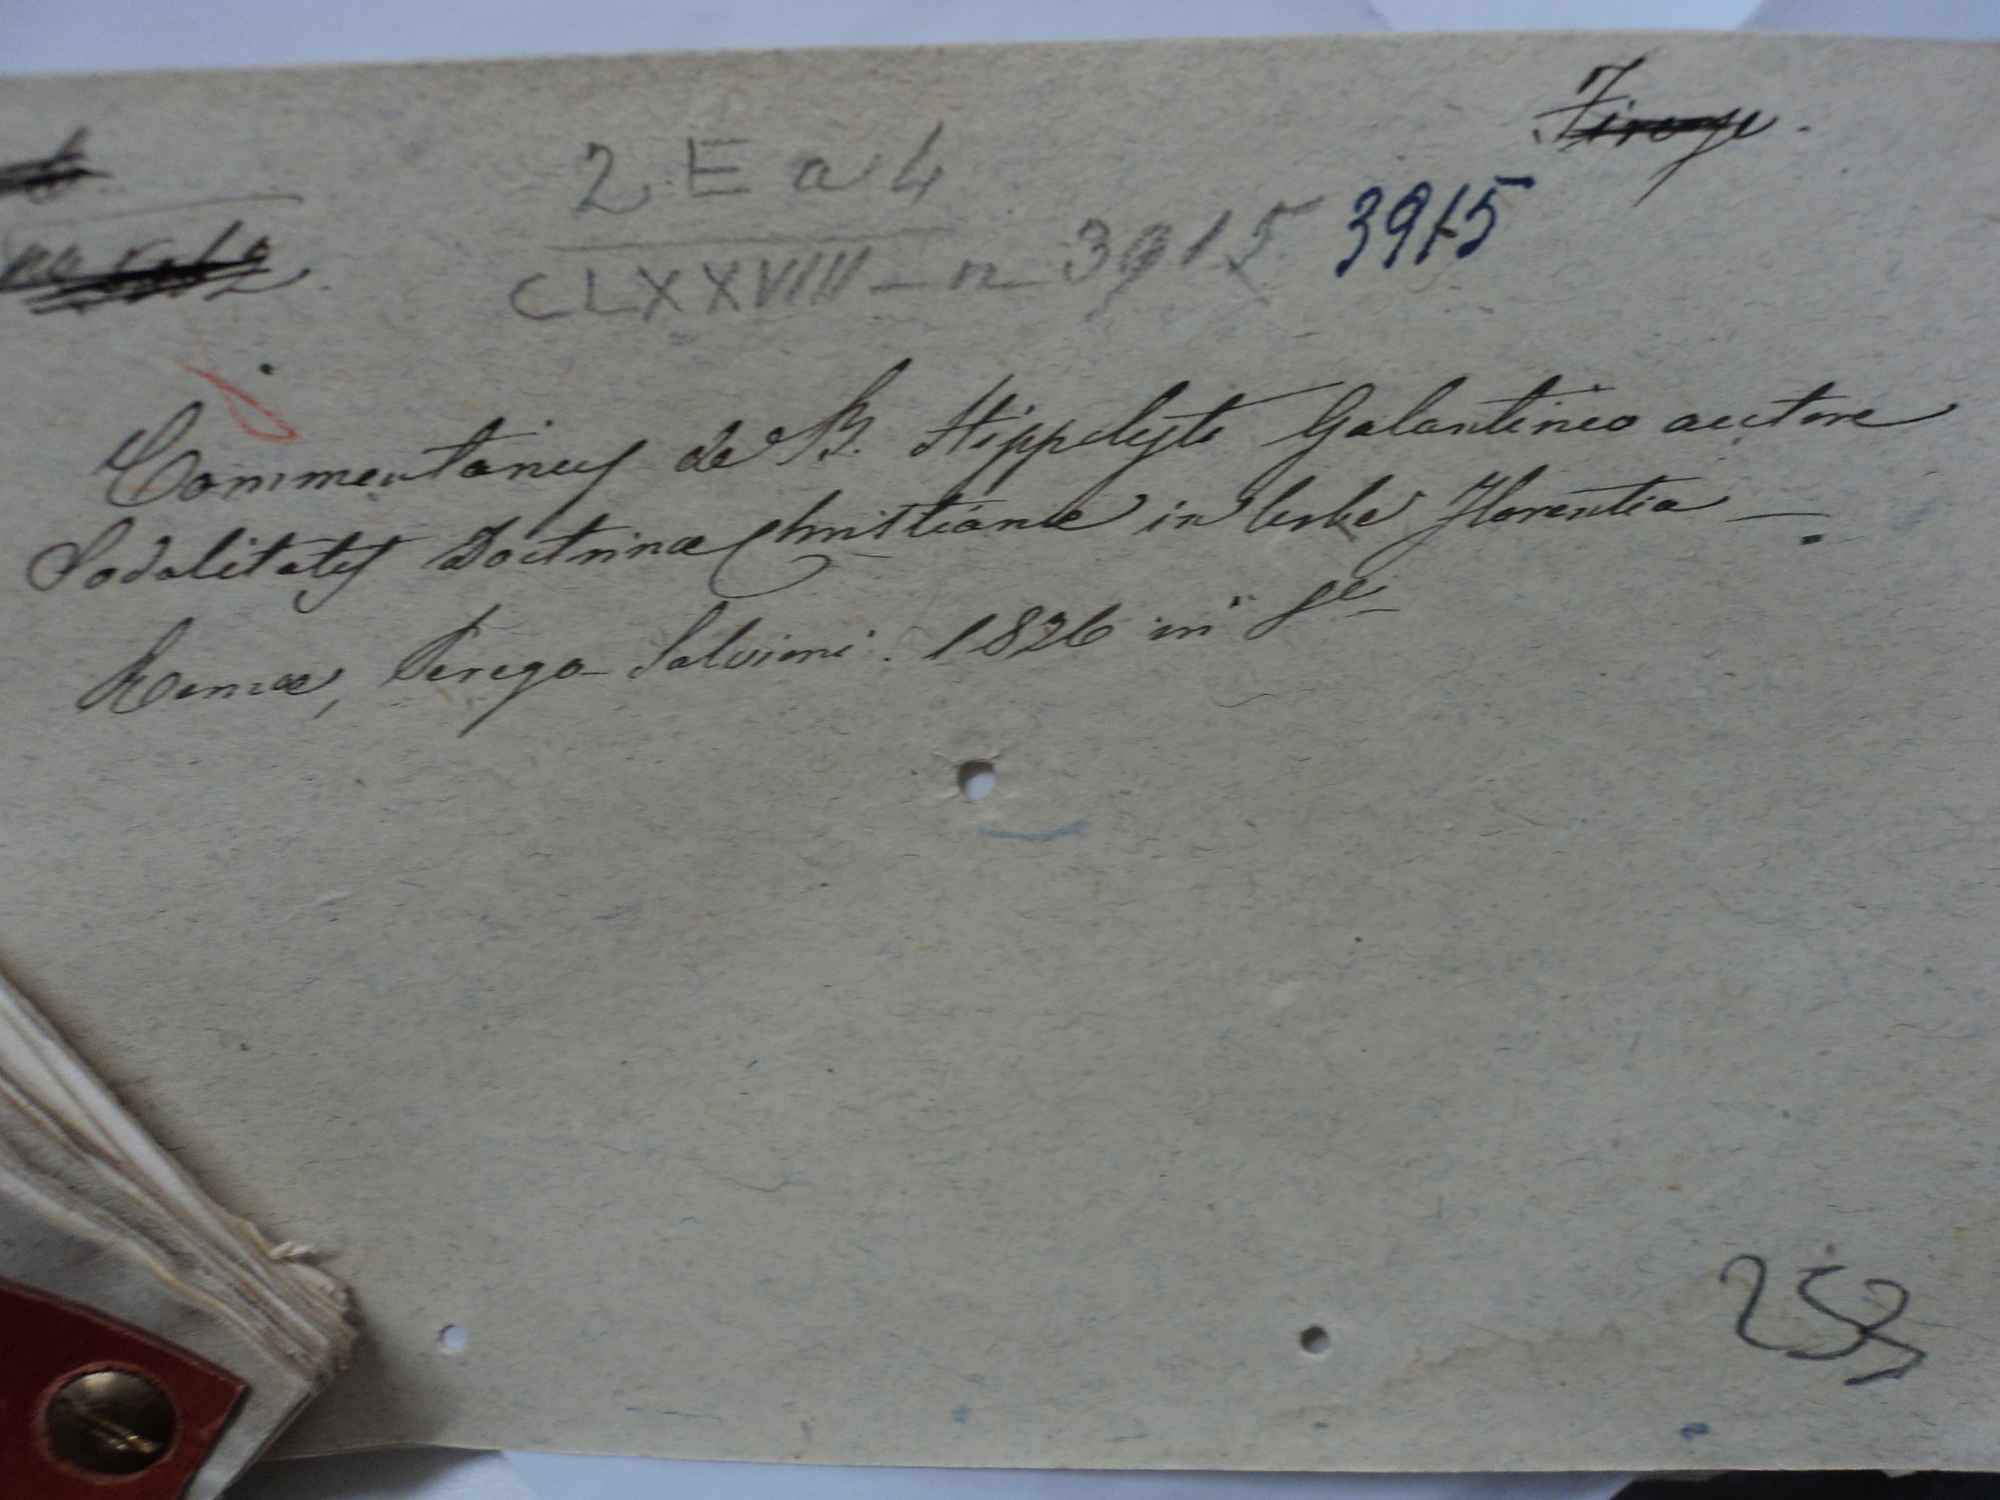 Firenze.
2 E a 4
CLXXVIII - n 3915 3915
Commentarius de B. Hippolyto Galantinio auctore
Sodalitatis Doctrinæ Christianæ in Urbe Florentia —.
Romæ, Perego-Salvioni. 1826 in 8º
253